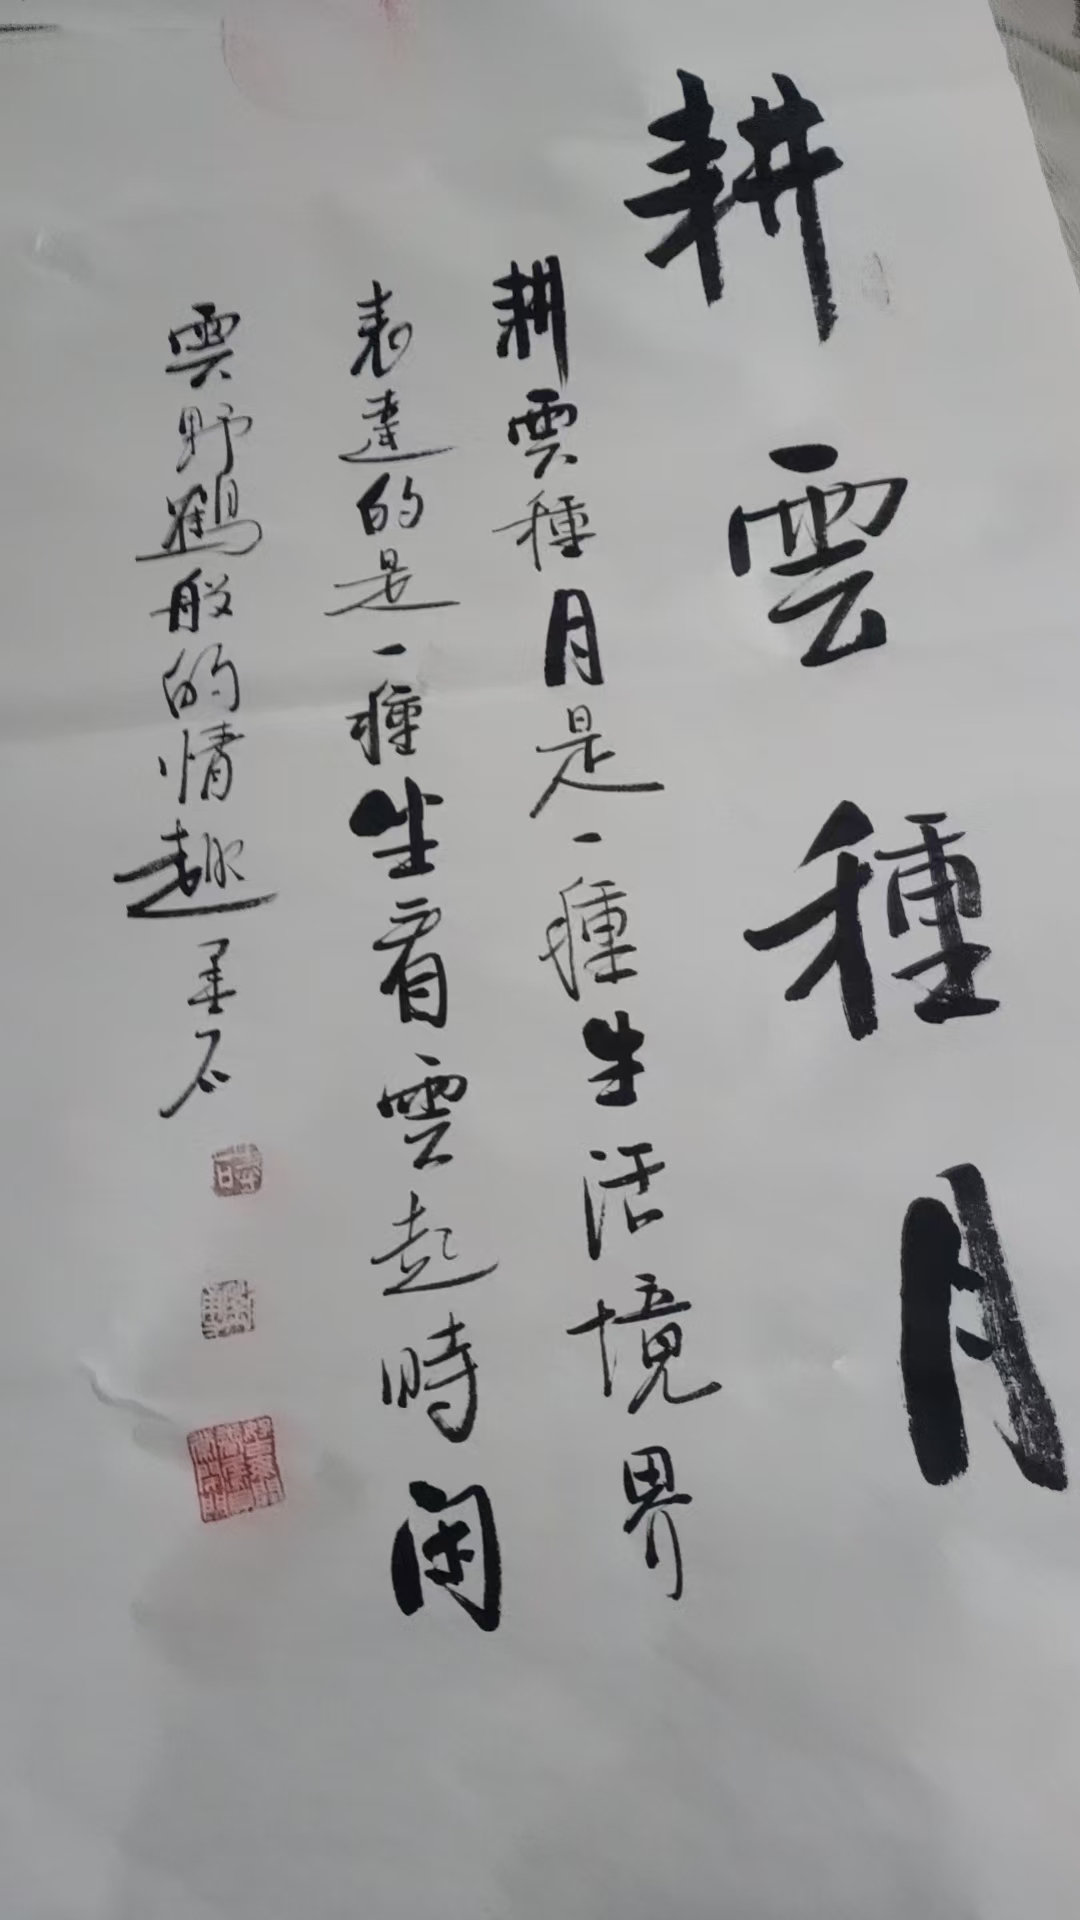 耕雲種月
耕雲種月是一種生活境界
表達的是一種坐看雲起時闲
雲野鶴般的情趣 墨石